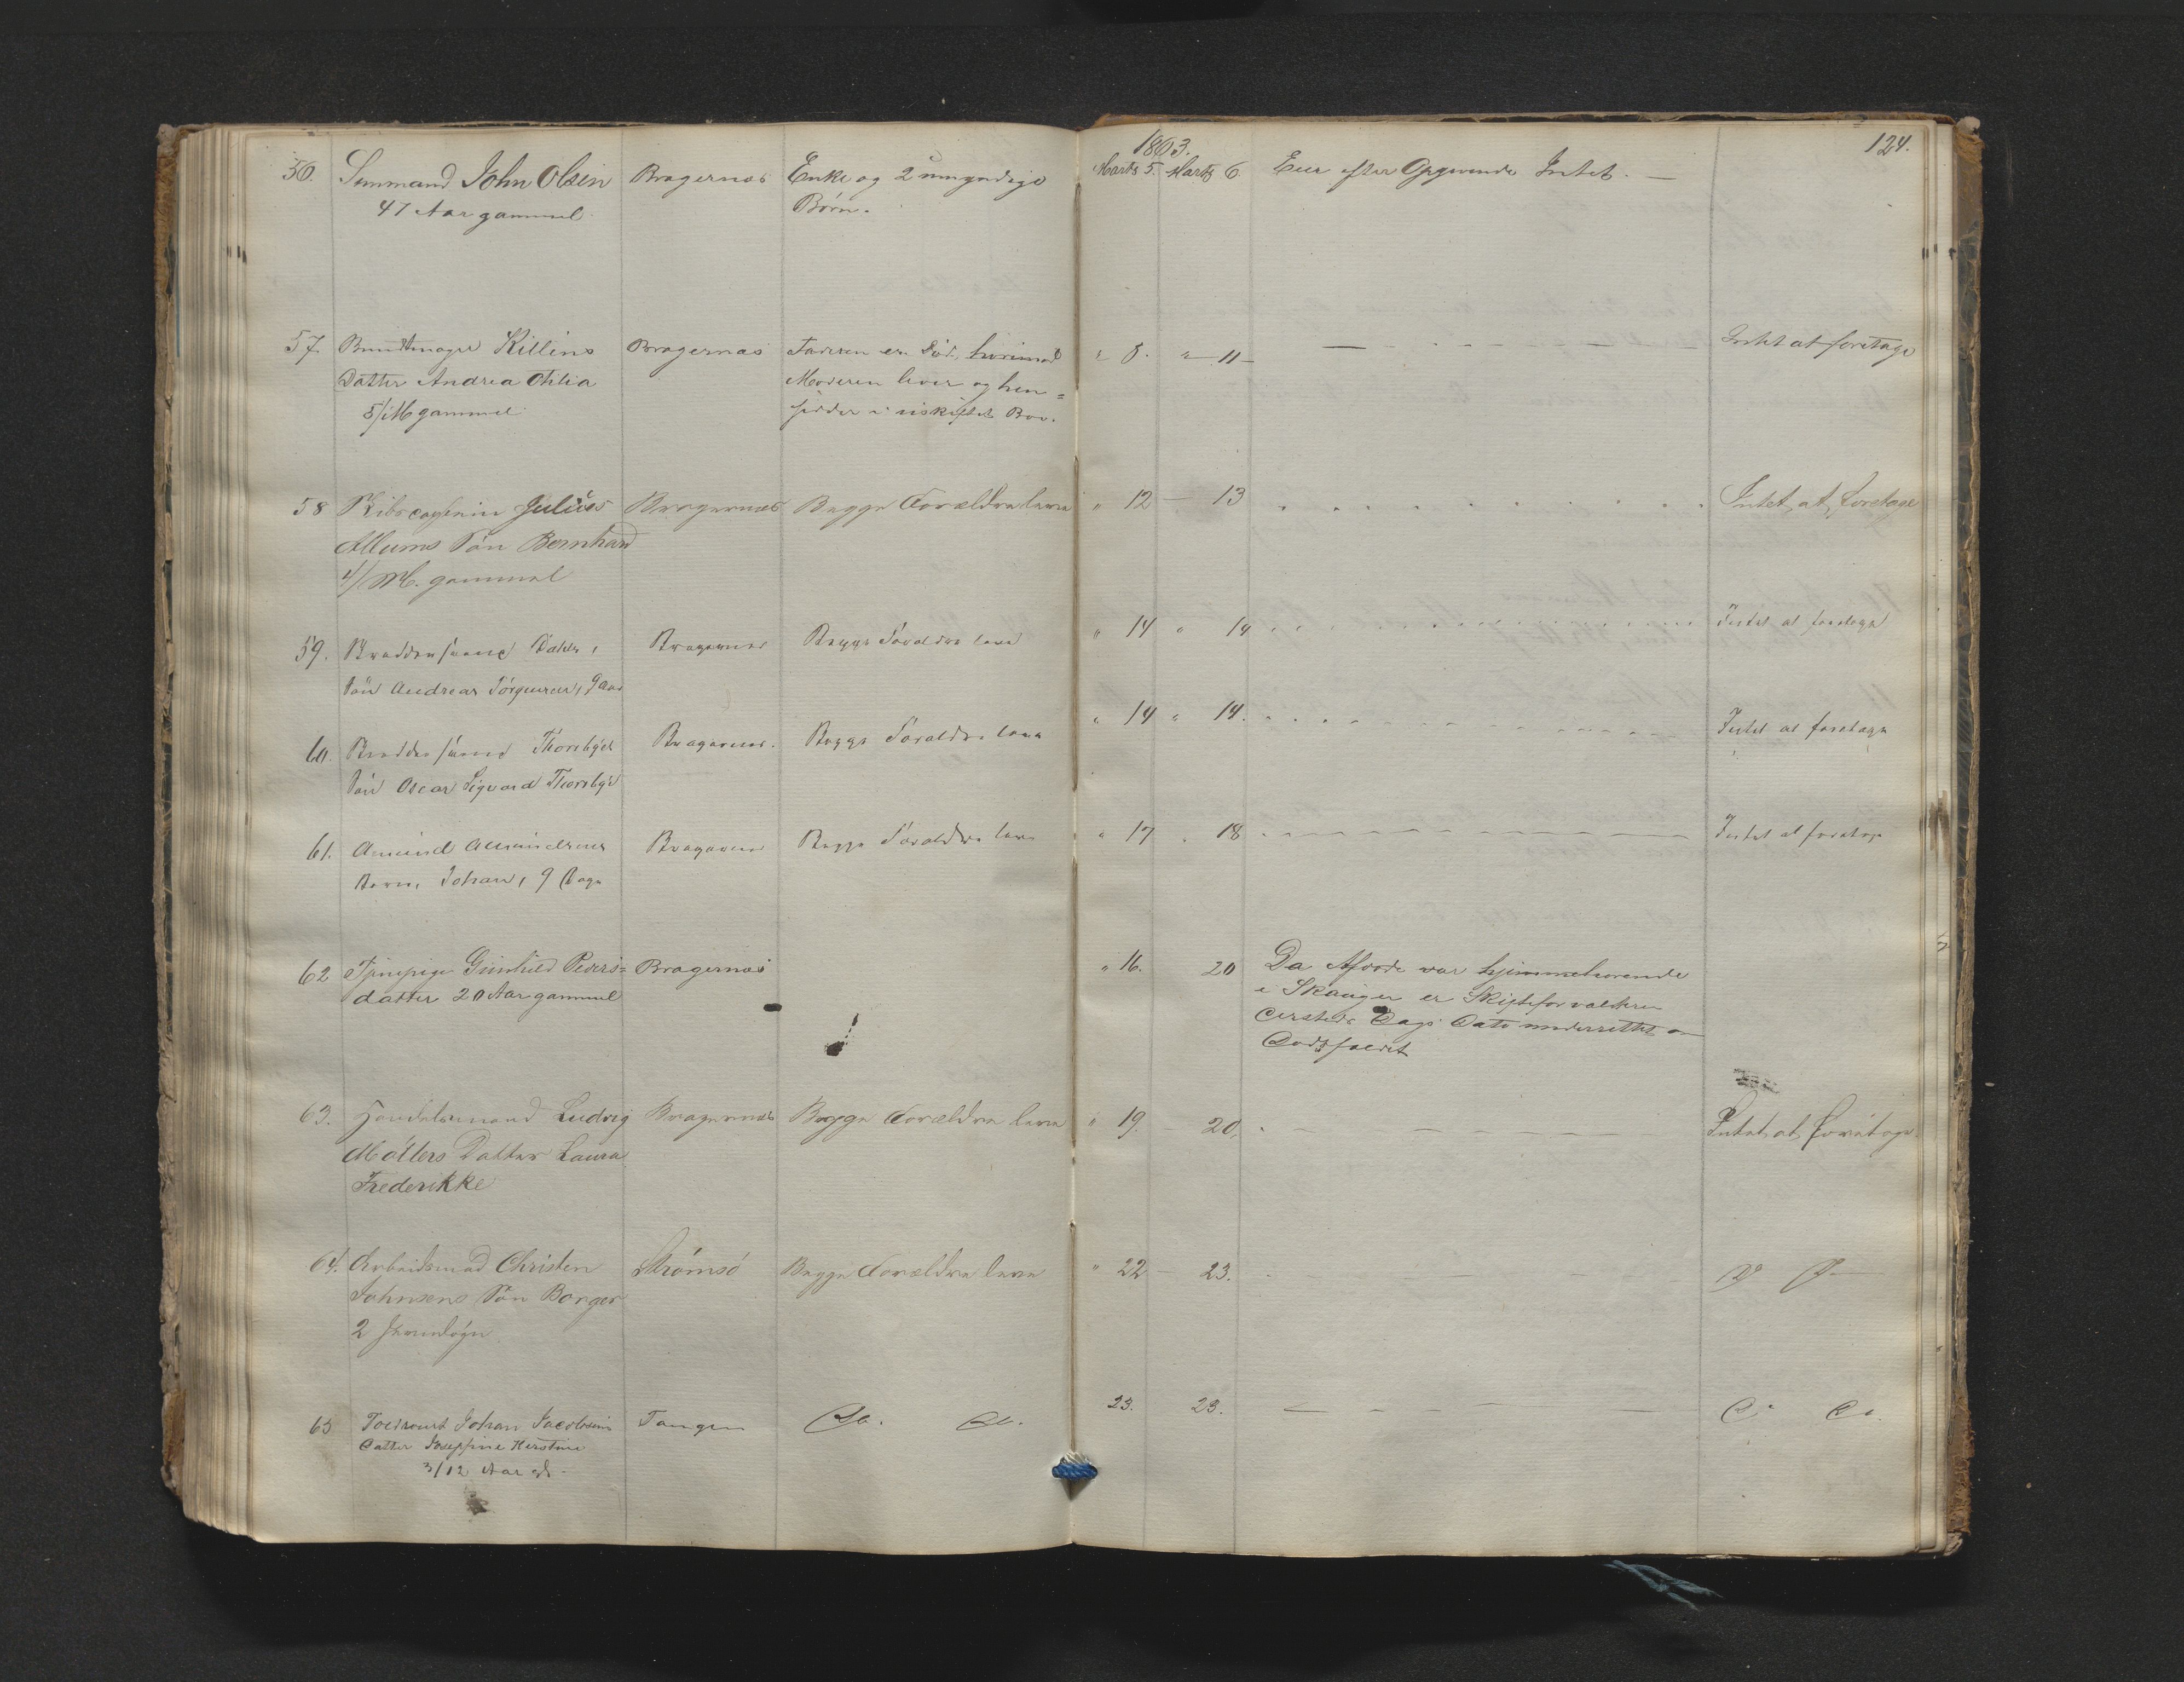 1863.
124.
56. Sømand John Olsen Bragernæs Enke og 2 umyndige Marts 5. Marts 6 Eier efter Opgivende Intet. —
47 Aar gammel. Børn.
57. Buntmager Killins Bragernæs Faderen er død, hvorimod " 8. " — 11 — Intet at foretage
Datter Andrea Otilia Moderen lever og hen=
5/M gammel sidder i uskiftet Bo.
58 Skibscaptein Julius Bragernæs Begge Forældre leve " 12 — 13 Intet at foretage
Allums Søn Bernhard
4/M. gammel
59. Dahls, Bragernæs Begge Forældre leve " 14 " 14 Intet at foretage
Søn Andreas Jørgensen, 9 Aar
60. Thoresbyes Bragernæs. Begge Forældre leve " 14 " 14. Intet at foretage
Søn Oscar Sigvard Thoresbye
61. Amund Amundsens Bragernæs Begge Forældre leve " 17 " 18 Intet at foretage
Barn, Johan, 9 Dage
62 Tjenepige Gunhild Peders= Bragernæs " 16. 20 Da Afdøde var hjemmehørende
datter 20 Aar gammel i Skauger er Skifteforvalteren
dersteds Dags Dato underrettet om
Dødsfaldet
63. Handelsmand Ludvig Bragernæs Begge Forældre leve " 19. 20. Intet at foretage
Møllers Datter Laura
Frederikke
64. Arbeidsmand Christen Strømsø Begge Forældre leve " 22 — 23. D D
Johnsens Søn Borger
2
65 Johan Jacobsens Tangen Do. Do. 23. 23. Do Do.
Datter Josephine
3/12 Aar gl.